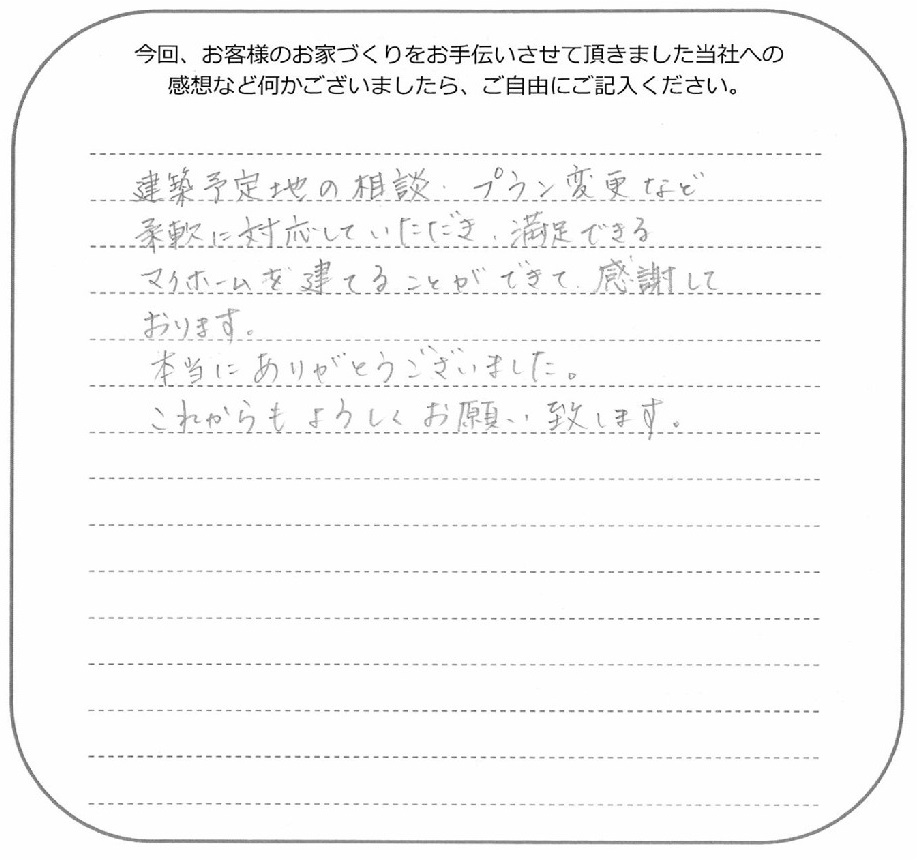 今回、お客様のお家づくりをお手伝いさせて頂きました当社への
感想など何かございましたら、ご自由にご記入ください。
建築予定地の相談、プラン変更など
柔軟に対応していただき、満足できる
マイホームを建てることができて、感謝して
おります。
本当にありがとうございました。
これからもよろしくお願い致します。